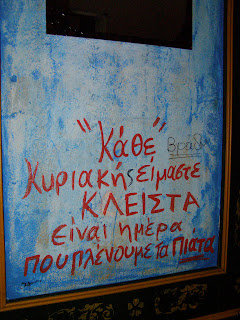 "Κάθε" βράδυ
Κυριακής είμαστε
ΚΛΕΙΣΤΑ
Είναι ημέρα
που πλένουμε τα Πιάτα